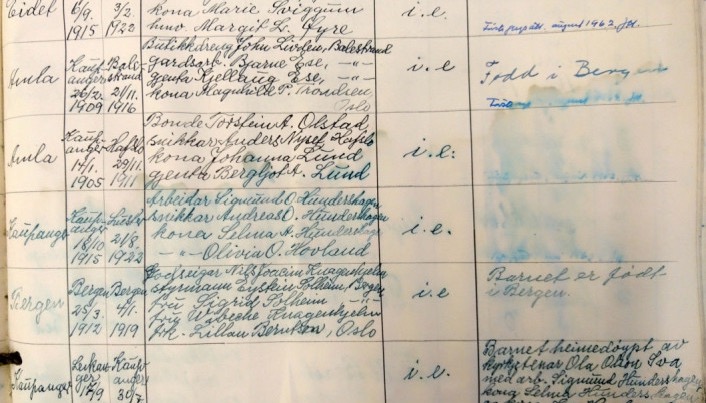 Eidet
6/9.
1915
3/2.
1923
kona Marie Sviggum
hmo. Margit L. Øyre
i. e.
august 1962.
Amla
Kaup-
anger
26/2.
1909
Bale-
strand
21/11.
1916
Butikkdreng John Linden, Balestrand
gardsarb. Bjarne Ese, -"-
gjenta Kjellaug Ese, -"-
kona Magnhild P. Trondsen
Oslo
i. e
Fødd i Bergen
Amla
Kaup-
anger
17/1.
1905
Hafslo
29/11.
1911
Bonde Torstein A. Olstad,
snikkar Anders Nysef Hafslo
kona Johanna Lund
gjenta Bergljot A. Lund
i. e:
Kaupanger
Kaup-
anger
18/10
1915
Luster
21/8.
1922
Arbeidar Sigmund O. Hundershagen
snikkar Andreas O. Hundershagen
kona Selma A. Hundershagen
-"- Olivia O. Hovland
i. e.
Bergen
Bergen
25/3.
1912
Bergen
4/1.
1919
Godseigar Nils Joacim Knagenhjelm
styrmann Eystein Solheim, Bergen
fru Sigrid Solheim -"-
fru Wibeche Knagenhjelm
frk. Lillan Berntsen, Oslo
i. e
Barnet er født
i Bergen.
Kaupanger
Leikan-
ger
17/9
Kaup-
anger
30/7
i. e.
Barnet heimedøypt av
kyrketenar Ola Olson Sva
med arb. Sigmund Hundershagen
kona Selma Hundershagen